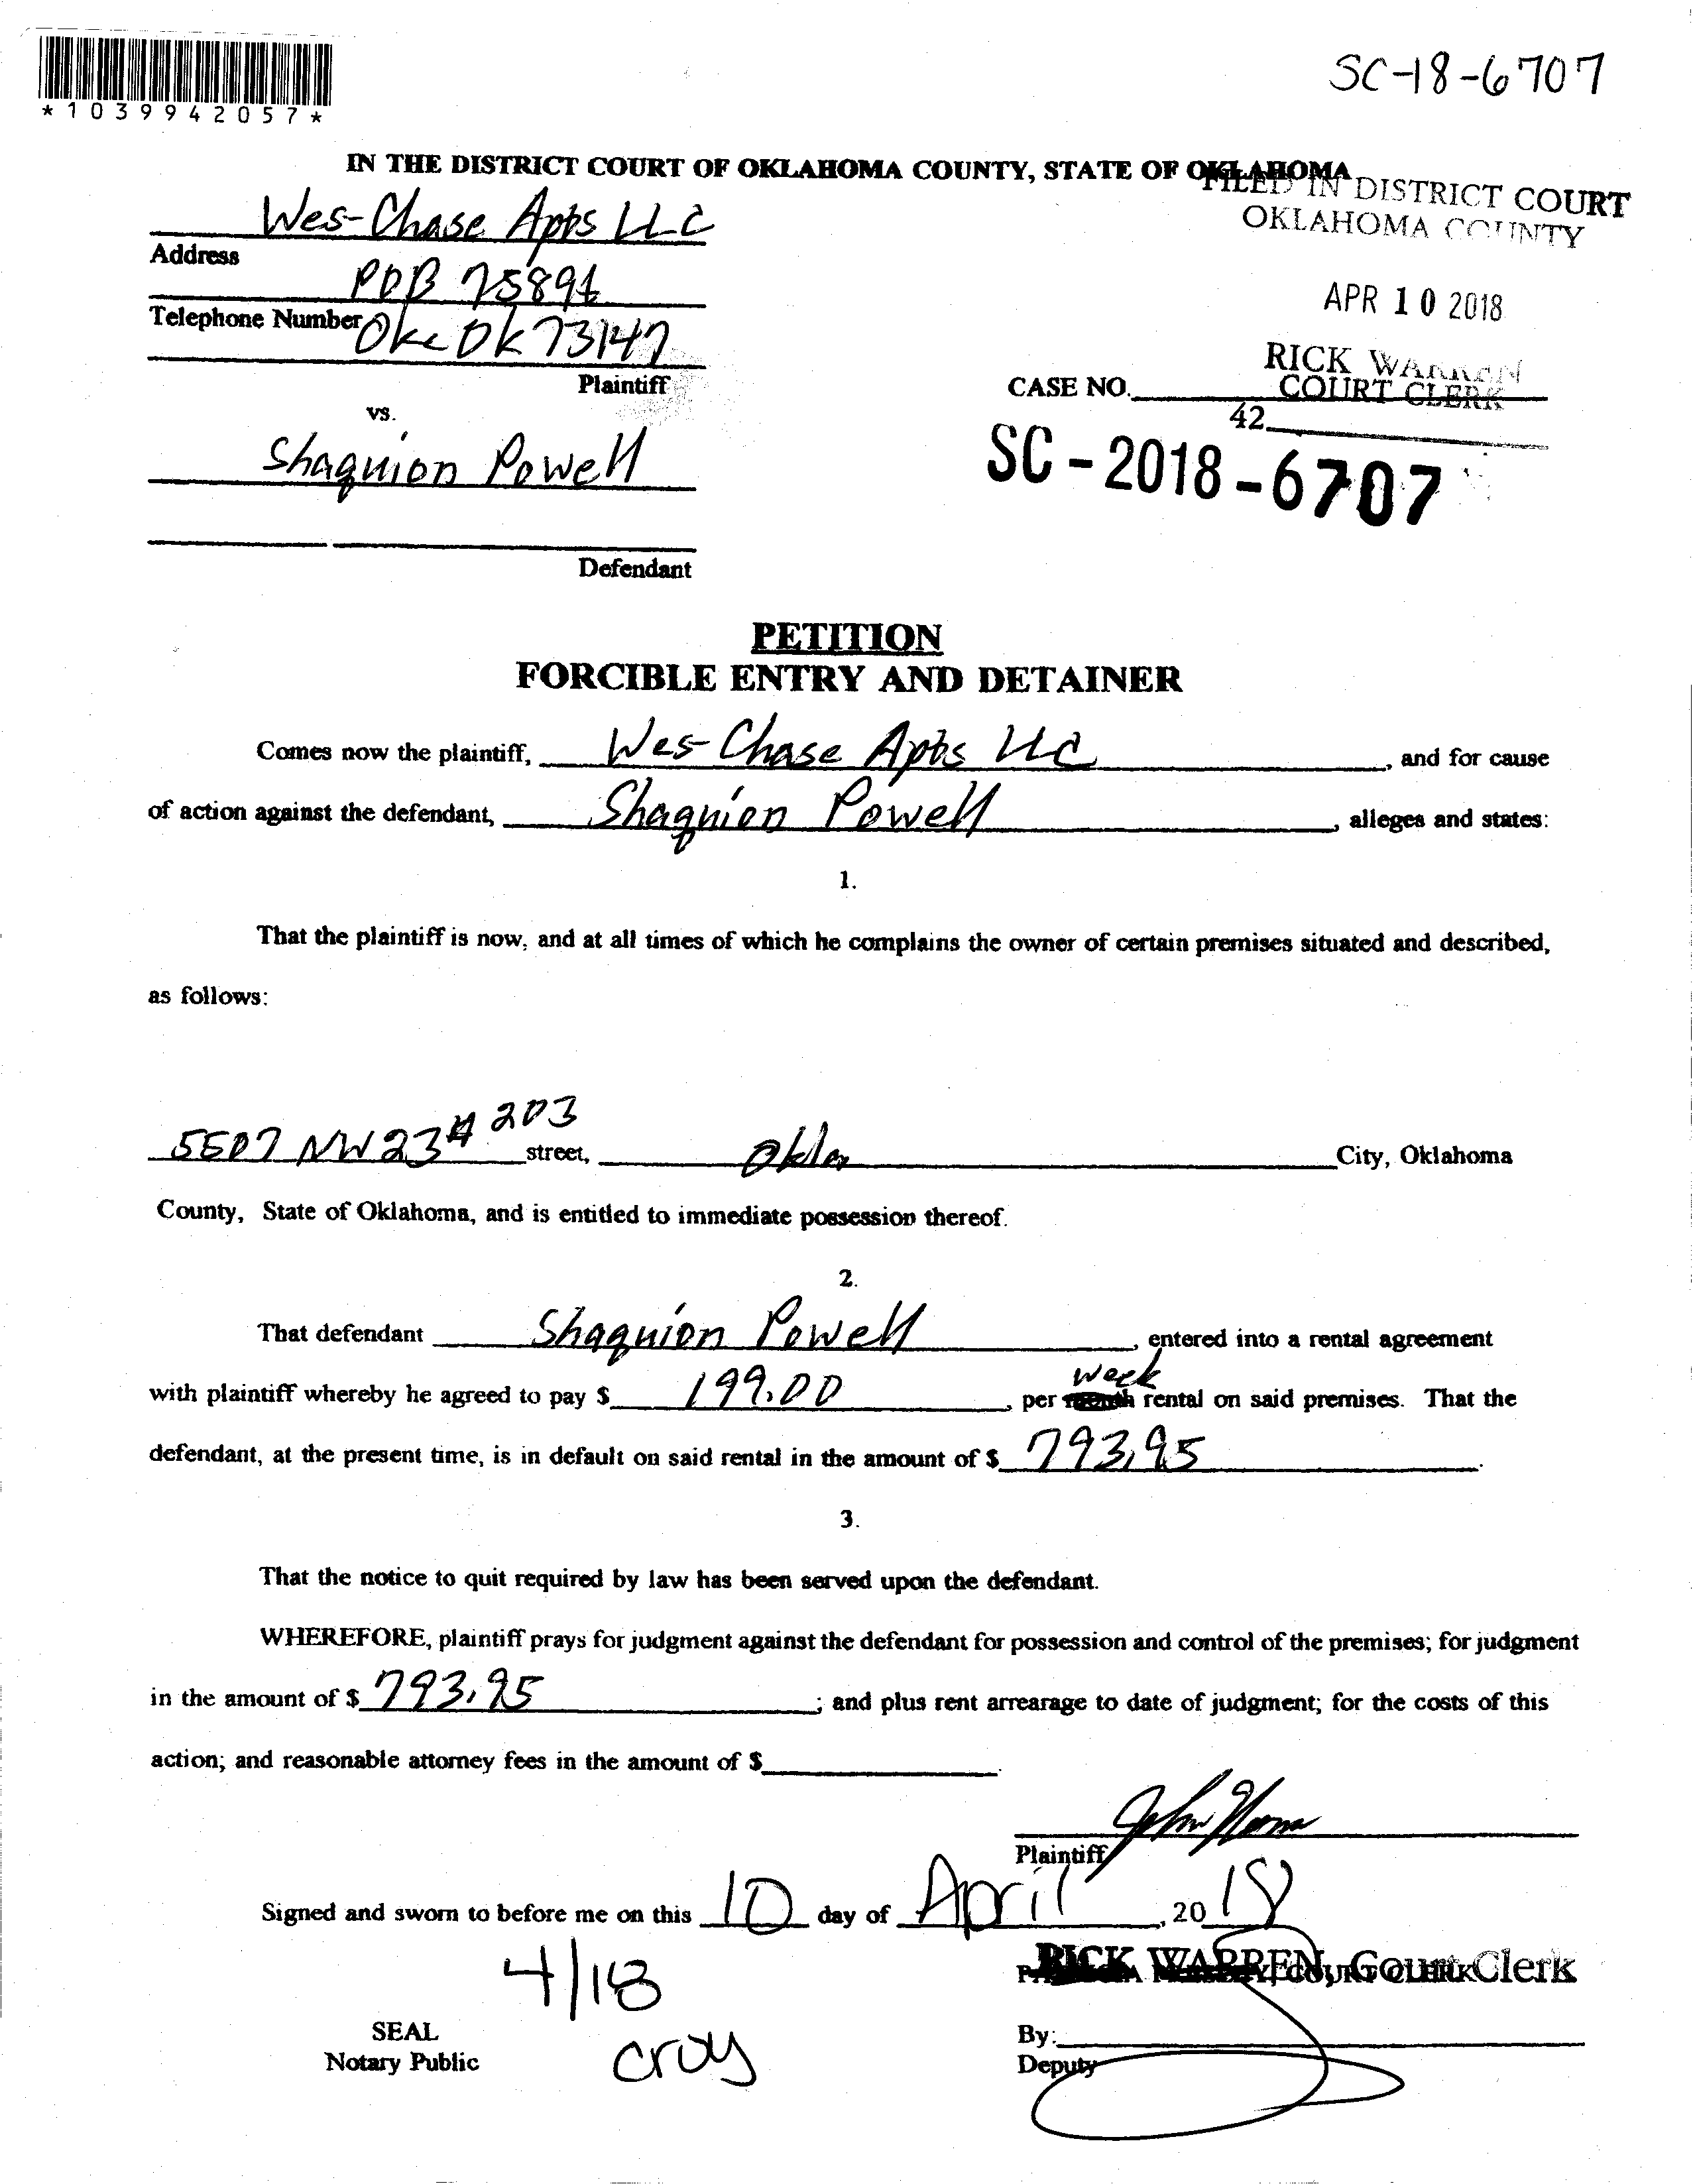 *1039942057*
SC-18-6707
IN THE DISTRICT COURT OF OKLAHOMA COUNTY, STATE OF OKLAHOMA
FILED IN DISTRICT COURT
OKLAHOMA COUNTY
Wes-Chase Apts LLC
Address
POB 75894
APR 10 2018
Telephone Number
Okc Ok 73147
RICK WARREN
COURT CLERK
Plaintiff
CASE NO.
vs.
42
Shaquion Powell
SC-2018-6707
Defendant
PETITION
FORCIBLE ENTRY AND DETAINER
Comes now the plaintiff, Wes-Chase Apts LLC, and for cause
of action against the defendant, Shaquion Powell, alleges and states:
1.
That the plaintiff is now, and at all times of which he complains the owner of certain premises situated and described,
as follows:
5507 NW 23 # 203 street, Okla City, Oklahoma
County, State of Oklahoma, and is entitled to immediate possession thereof.
2.
That defendant Shaquion Powell, entered into a rental agreement
with plaintiff whereby he agreed to pay $ 199.00, per week rental on said premises. That the
defendant, at the present time, is in default on said rental in the amount of $ 793.95.
3.
That the notice to quit required by law has been served upon the defendant.
WHEREFORE, plaintiff prays for judgment against the defendant for possession and control of the premises; for judgment
in the amount of $ 793.95; and plus rent arrearage to date of judgment; for the costs of this
action; and reasonable attorney fees in the amount of $.
John
Plaintiff
Signed and sworn to before me on this 10 day of April, 2018
RICK WARREN, Court Clerk
4/18
SEAL
By:
Notary Public
croy
Deputy